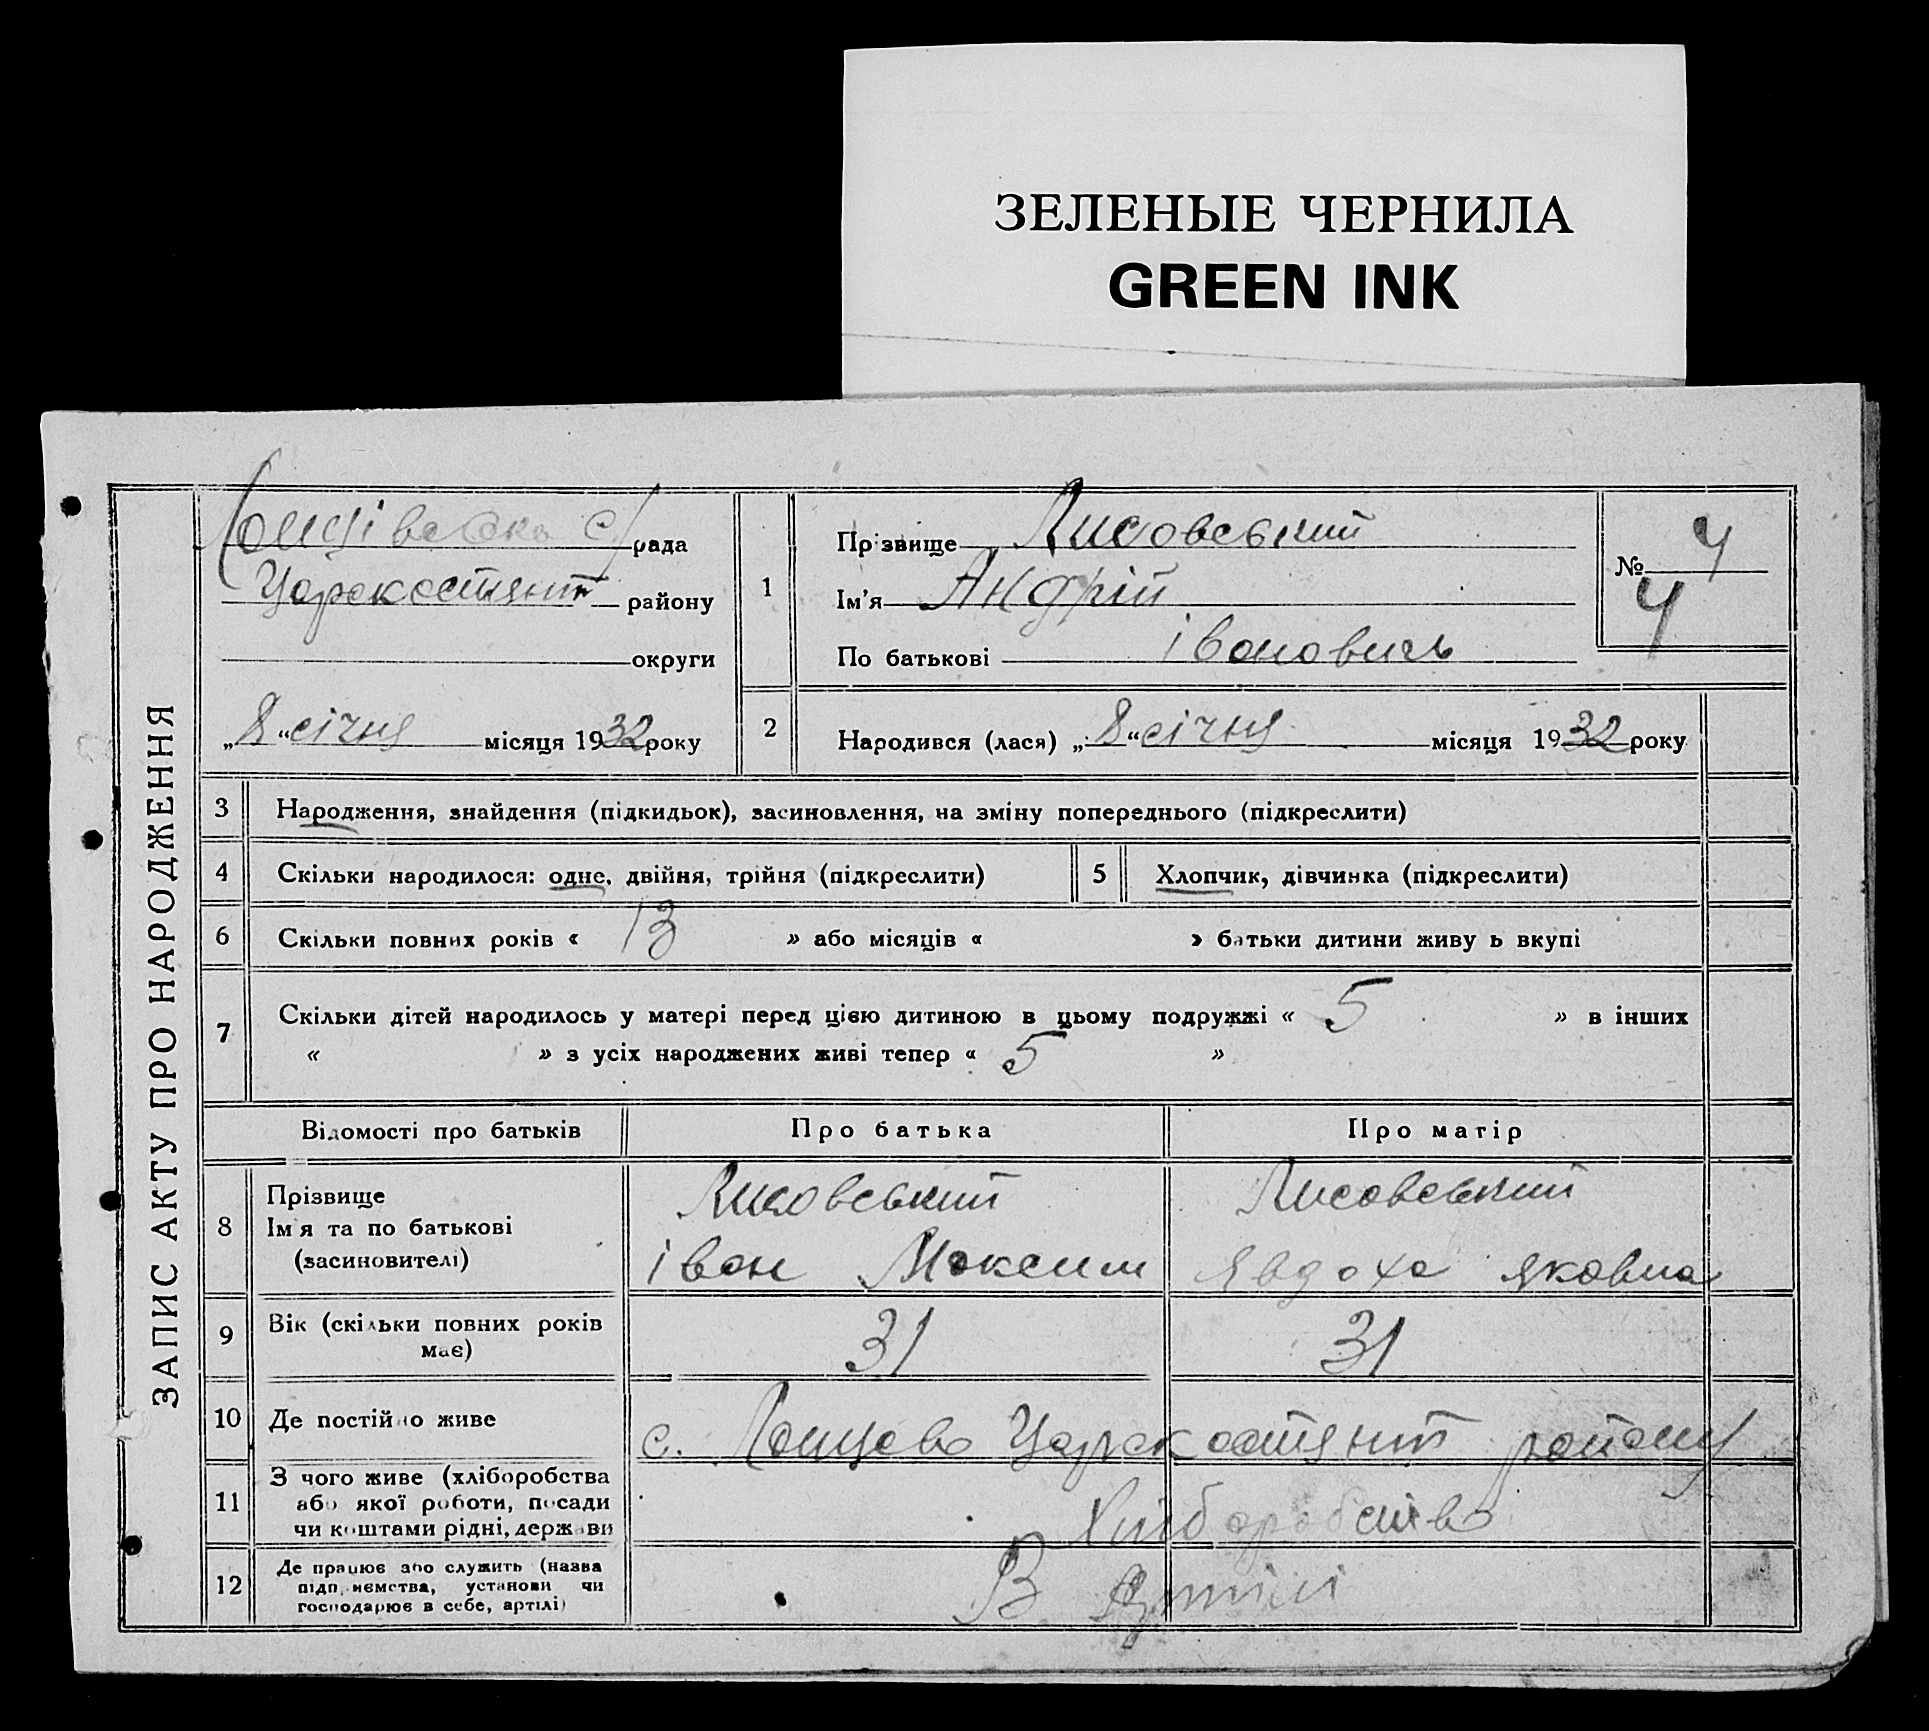 ЗЕЛЕНЫЕ ЧЕРНИЛА
GREEN INK
ЗАПИС АКТУ ПРО НАРОДЖЕННЯ
с/рада
Царскостянт району
округи
„8“ січня місяця 1932 року
1
Прізвище Лисовський
Ім'я Андрій
По батькові івонович
№ 4
4
2
Народився (лася) „8“ січня місяця 1932 року
3 Народження, знайдення (підкидьок), засиновлення, на зміну попереднього (підкреслити)
4 Скільки народилося: одне, двійня, трійня (підкреслити)
5 Хлопчик, дівчинка (підкреслити)
6 Скільки повних років « 13 » або місяців « » батьки дитини живу ь вкупі
7 Скільки дітей народилось у матері перед цією дитиною в цьому подружжі « 5 » в інших
« » з усіх народжених живі тепер « 5 »
Відомості про батьків
Про батька
Про матір
8 Прізвище
Ім'я та по батькові
(засиновителі)
Лисовський
івон Моксим
Лисовський
Явдоха яковна
9 Вік (скільки повних років
має)
31
31
10 Де постійно живе
с. Царскостянт району
11 З чого живе (хліборобства
або якої роботи, посади
чи коштами рідні, держави
Хліборобство
12 Де працює або служить (назва
підприємства, установи чи
господарює в себе, артілі)
В Артілі